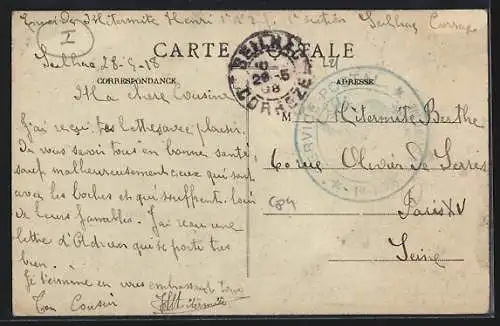 Envoi de Mitermite Henri 1re section Seilhac Corrèze
I
CARTE POSTALE
Seilhac 28-5-18
CORRESPONDANCE
ADRESSE
SEILHAC
28-5
CORREZE
SERVICE POSTAL
Ma chère Cousine
J'ai reçu ta lettre avec plaisir
de vous savoir tous en bonne santé
sauf malheureusement ceux qui sont
avec les boches et qui souffrent loin
de leurs familles. J'ai reçu une
lettre d'Adrien qui se porte très
bien.
Je termine en vous embrassant tous
Ton Cousin
HMitermite
M Mitermite Berthe
60 rue Olivier de Serres
Paris XV
Seine